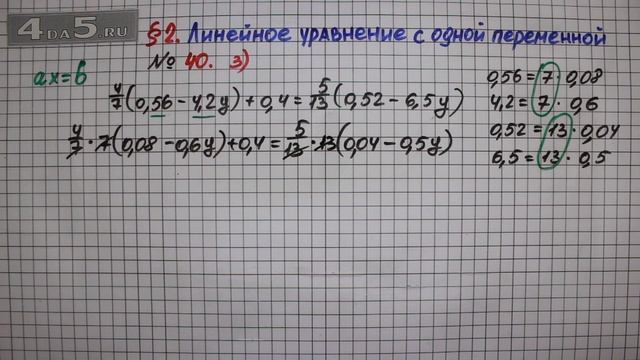 4DA5.RU
§2. Линейное уравнение с одной переменной
№ 40. 3)
ax=b
4/7(0,56-4,2y)+0,4=5/13(0,52-6,5y)
4/7·7(0,08-0,6y)+0,4=5/13·13(0,04-0,5y)
0,56=7·0,08
4,2=7·0,6
0,52=13·0,04
6,5=13·0,5